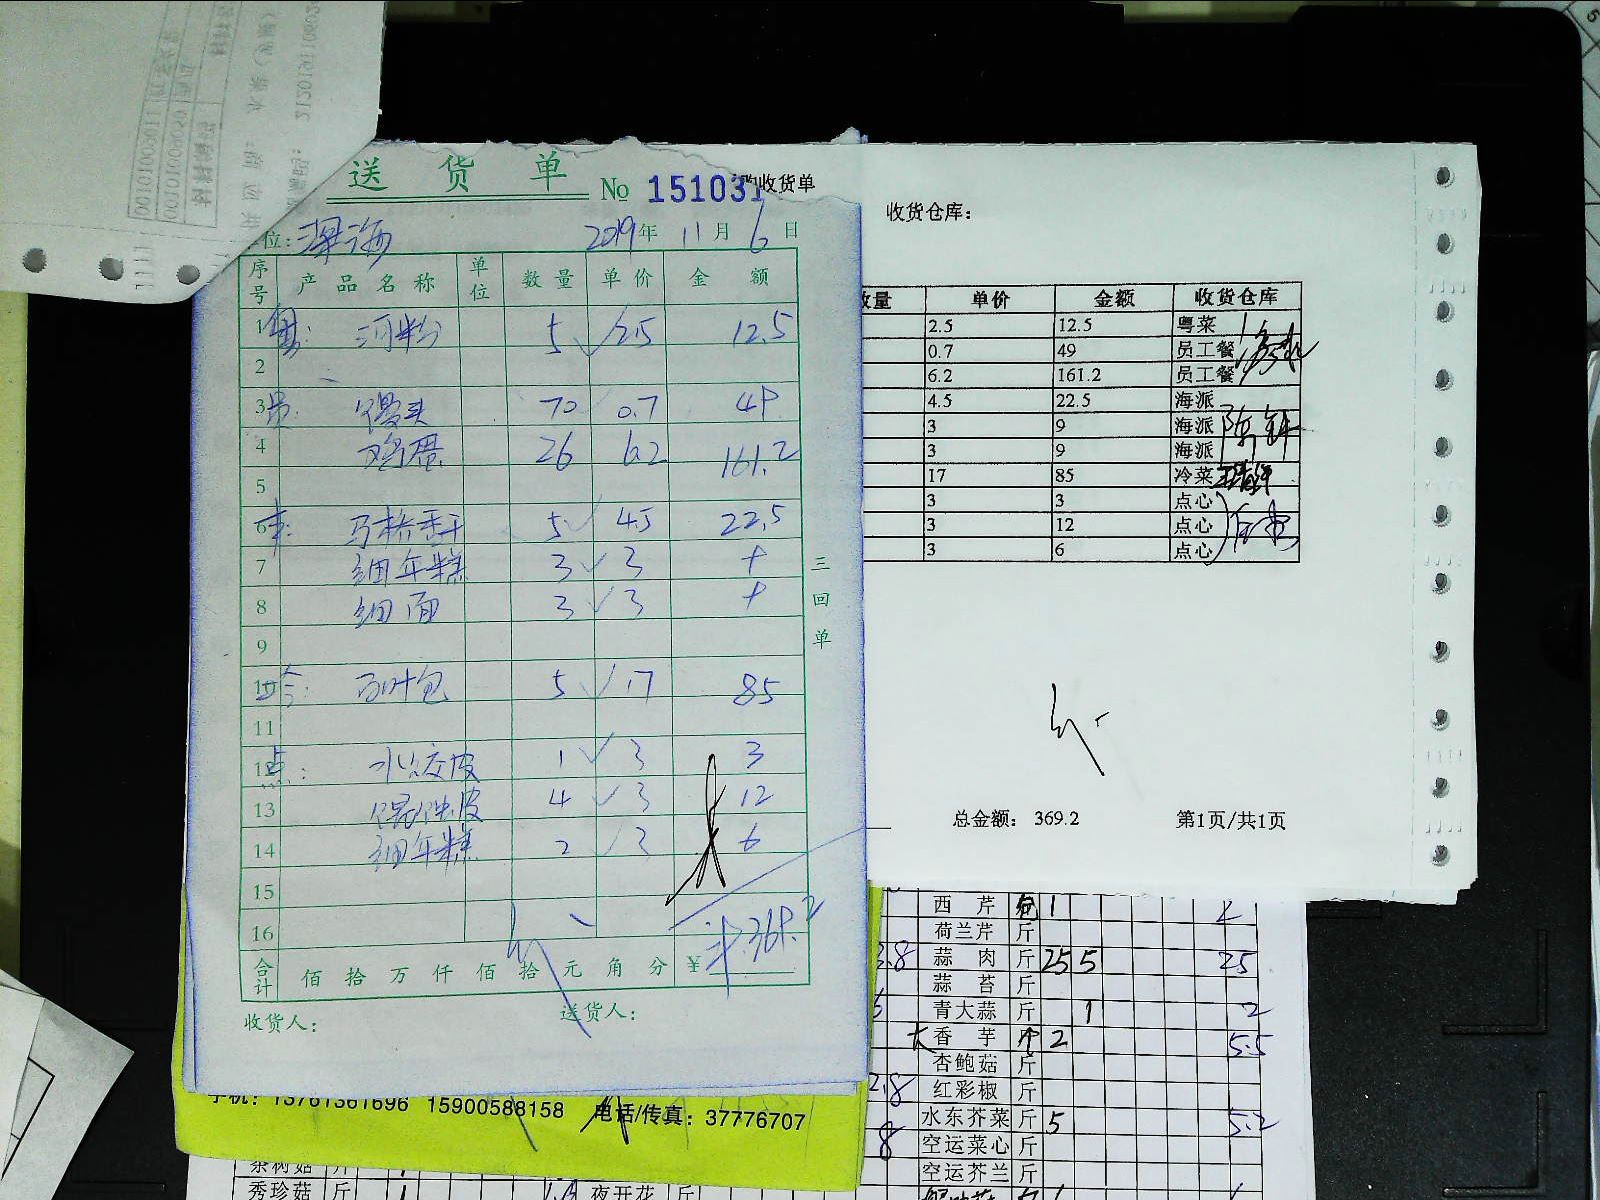 送 货 单 No 151031
位: 深海 2019年 11月 6日
序号 产品名称 单位 数量 单价 金额
1 粤: 河粉 5 2.5 12.5
2
3 馒头 70 0.7 49
4 鸡蛋 26 6.2 161.2
5
6 5 4.5 22.5
7 细年糕 3 3 9
8 细面 3 3 9
9
10 冷: 百叶包 5 17 85
11
12 点: 水饺皮 1 3 3
13 馄饨皮 4 3 12
14 细年糕 2 3 6
15
16
合计 佰 拾 万 仟 佰 拾 元 角 分 ¥ 计:369.2
收货人: 送货人:
三回单
购收货单
收货仓库:
数量 单价 金额 收货仓库
2.5 12.5 粤菜
0.7 49 员工餐
6.2 161.2 员工餐
4.5 22.5 海派
3 9 海派
3 9 海派
17 85 冷菜
3 3 点心
3 12 点心
3 6 点心
总金额: 369.2 第1页/共1页
手机: 13761361696 15900588158 电话/传真: 37776707
西芹 1
荷兰芹 斤
3.8 蒜肉 斤 25 5 25
蒜苔 斤
青大蒜 斤 1 2
大 香芋 2 5.5
杏鲍菇 斤
2.8 红彩椒 斤
水东芥菜 斤 5 5.2
8 空运菜心 斤
空运芥兰 斤
茶树菇 斤
秀珍菇 斤 夜开花 斤